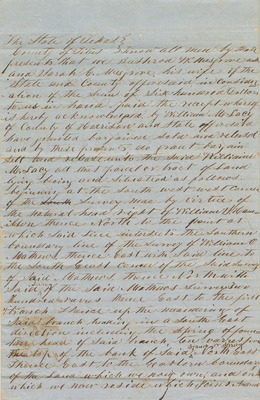 The State of Texas
County of Titus Know all men by these
presents that we Bushrod W Musgrove and
and Sarah C. Musgrove his wife of the
State and County aforesaid in consider
ation of the sum of Six hundred dollars
to us in hand paid the receipt whereof
is hereby acknowledged by William McLacy
of County of Harrison and State aforesaid
have granted bargained sold and released
and by these presents do grant bargain
sell and release unto the said William
McLacy all that parcel or tract of land
lying being and situated as follows
beginning at the South west corner
of the Survey made by virtue of
the natural head right of William
thence North to the
which said line intersects the Southern
boundary line of the Survey of William O
Mathews thence East with said line to
the South East Corner of the Survey
of said Mathews thence N 2 M with
said of the said Mathews Survey two
hundred varas thence East to the first
branch thence up the meanderings of
said branch, leading in a South East
direction including the Spring of
head of said branch, ten varas from
the top of the bank of said North East
thence East to the Eastern boundary
of the land which we now own, and on
which we now reside which